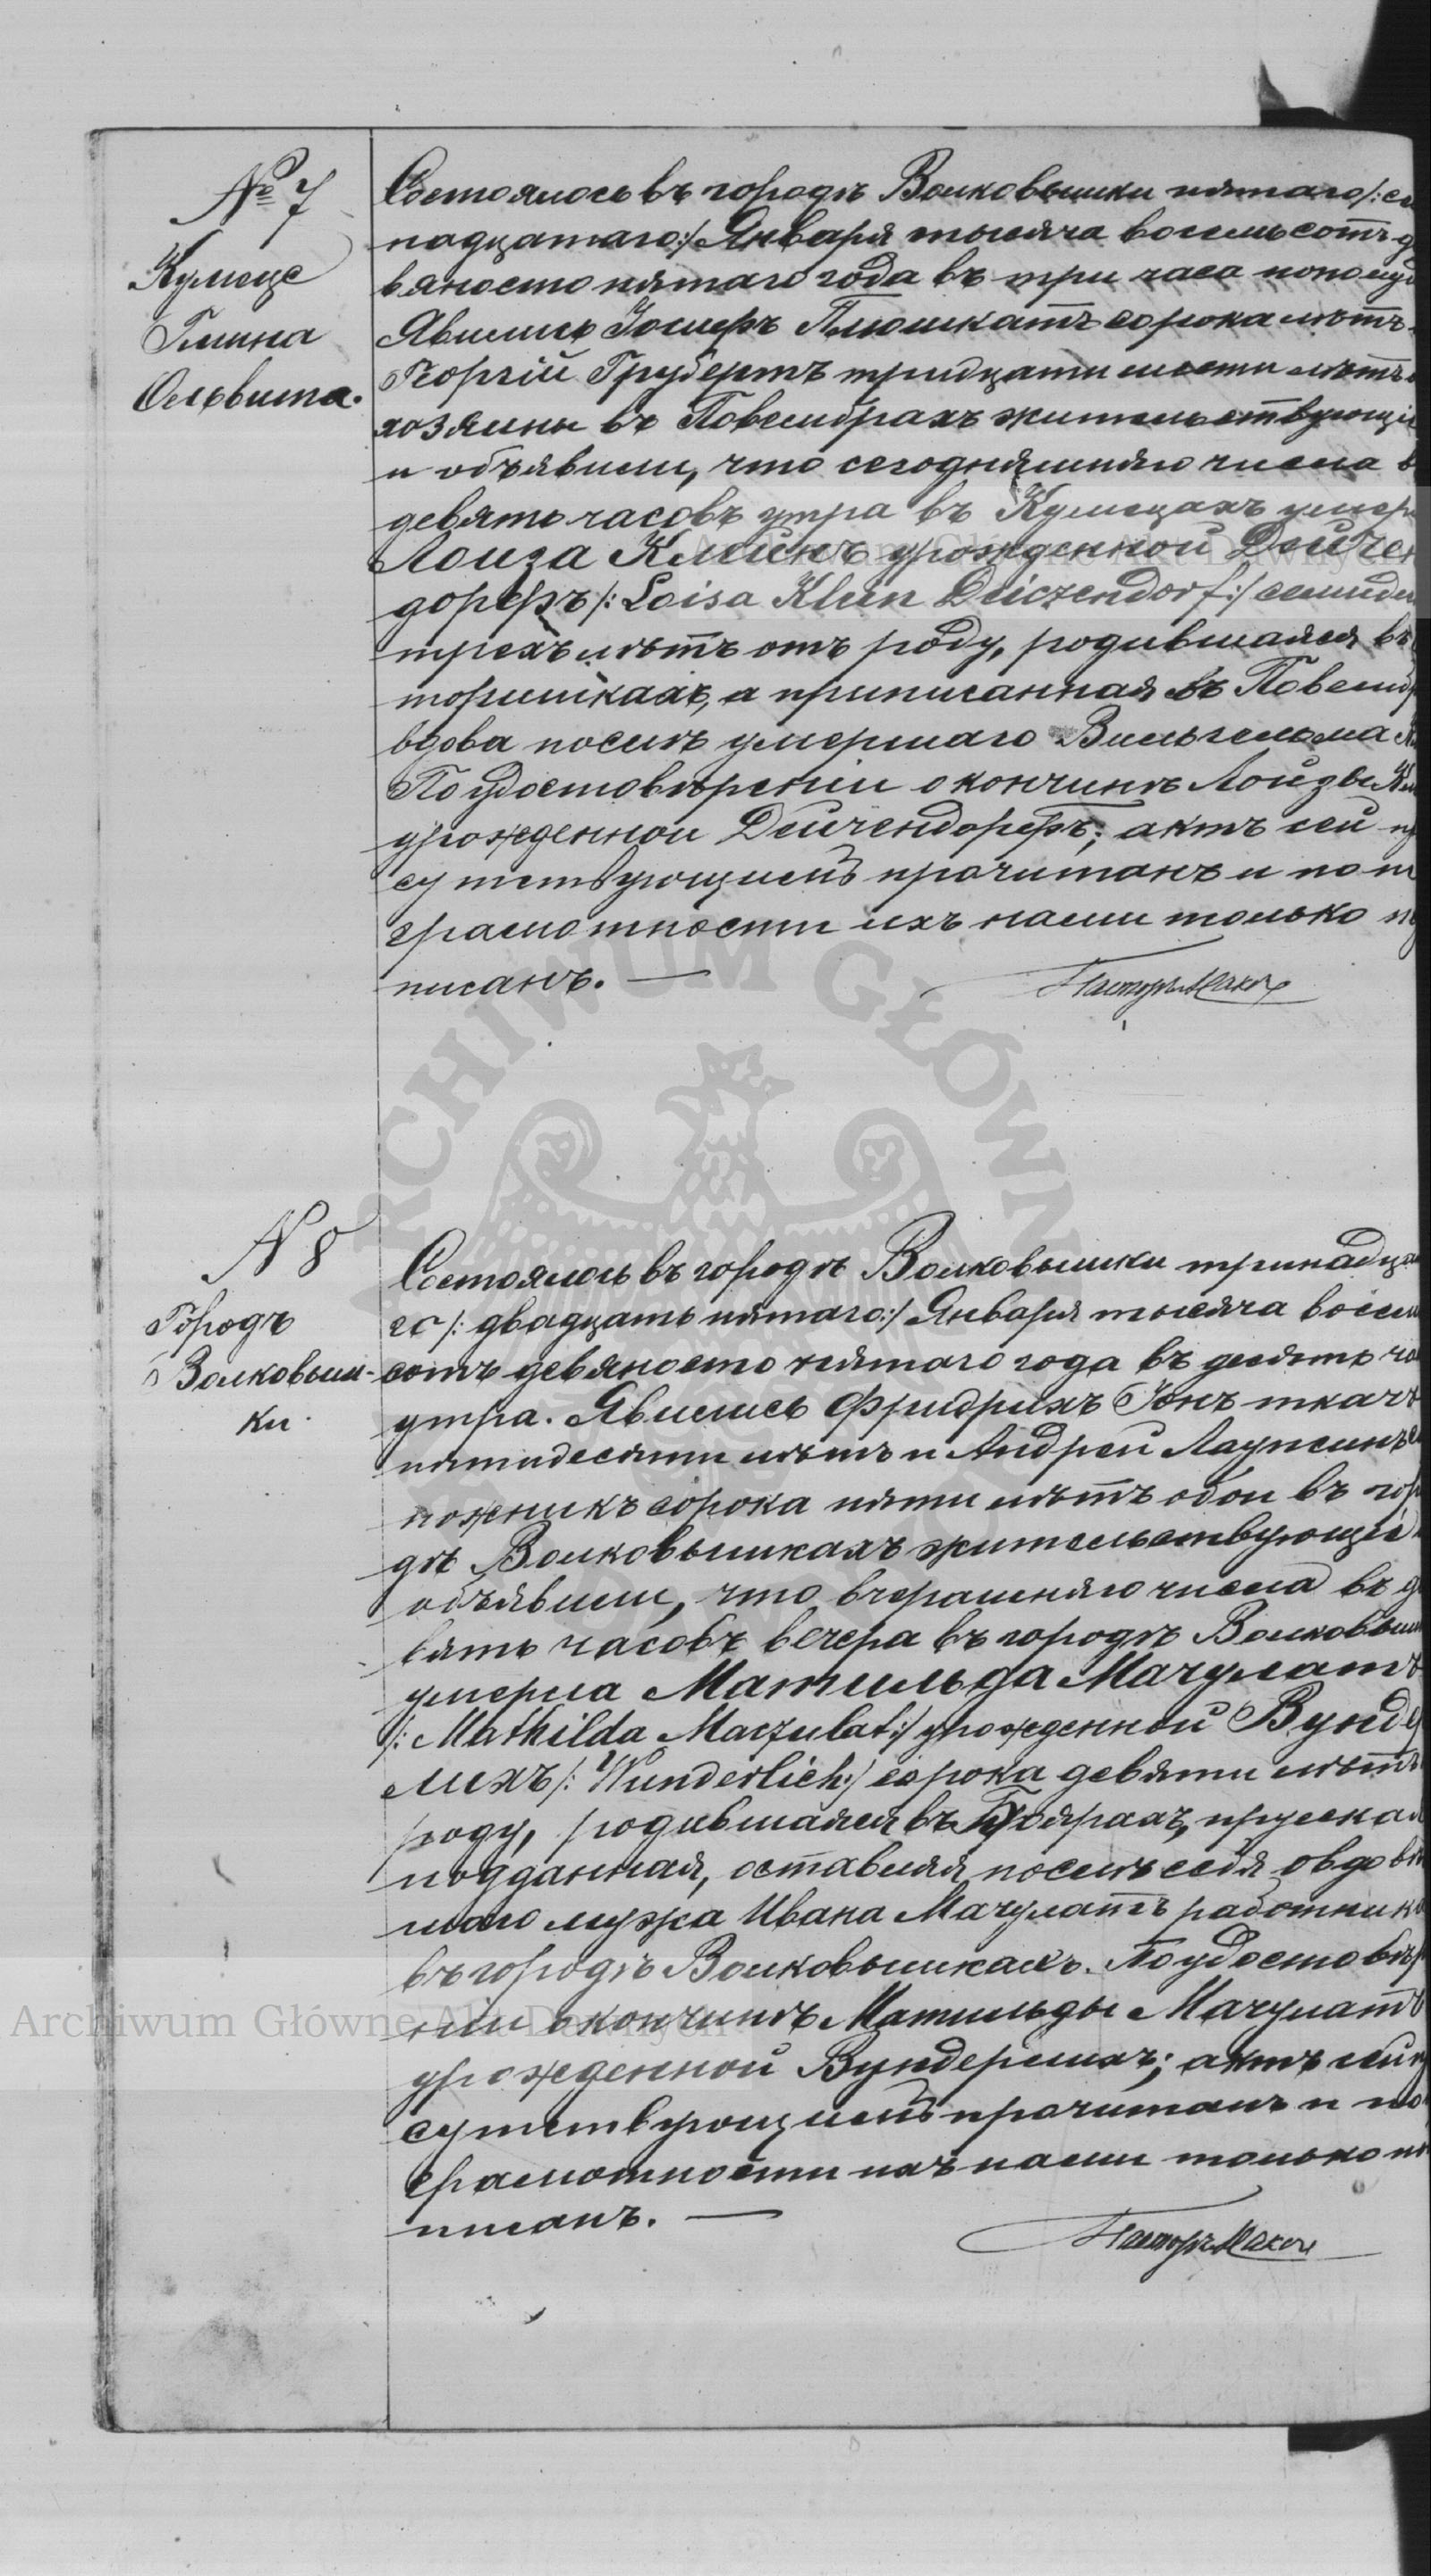 № 7
Кумеце
Гмина
Ольвита.
Состоялось въ городѣ Волковышки пятаго /: се
надцатаго:/ Января тысяча восемьсотъ д
вяносто пятаго года въ три часа пополуд
Явились Іосифъ Плюшкатъ сорока лѣтъ
Георгій Грубертъ тридцати шести лѣтъ
хозяины въ Повембрахъ жительствующіе
и объявили, что сегодняшняго числа в
девять часовъ утра въ Кумецахъ умер
Лоиза Клейнъ урожденной Дейчен
дорфъ /: Loisa Klein Deiczendorf :/ семиде
трехъ лѣтъ отъ роду, родившаяся въ
торишкахъ, а приписанная въ Повемб
вдова послѣ умершаго Вильгельма К
По удостовѣреніи о кончинѣ Лоизы Кл
урожденной Дейчендорфъ; актъ сей пр
сутствующимъ прочитанъ и по не
грамотности ихъ нами только по
писанъ. —
Пасторъ
N 8
Городъ
Волковыш-
ки.
Состоялось въ городѣ Волковышки тринадца
го /: двадцать пятаго:/ Января тысяча восем
сотъ девяносто пятаго года въ десять ча
утра. Явились Фридрихъ Іонъ ткачъ
пятидесяти лѣтъ и Андрей Лаупсинъ са
пожникъ сорока пяти лѣтъ обои въ горо
дѣ Волковышкахъ жительствующіе
объявили, что вчерашняго числа въ де
вять часовъ вечера въ городѣ Волковыш
умерла Матильда Мачулатъ
/: Mathilda Maczulat :/ урожденной Вунде
лихъ /: Wunderlich :/ сорока девяти лѣтъ
роду, родившаяся въ пруская
подданная, оставляя послѣ себя овдовѣ
шаго мужа Ивана Мачулатъ работника
въ городѣ Волковышкахъ. По удостовѣр
ніи о кончинѣ Матильды Мачулатъ
урожденной Вундерлихъ; актъ сей пр
сутствующимъ прочитанъ и по
грамотности ихъ нами только по
писанъ. —
Пасторъ
ARCHIWUM GŁÓWN
Archiwum Główne Akt Dawnych
Archiwum Główne Akt Dawnych